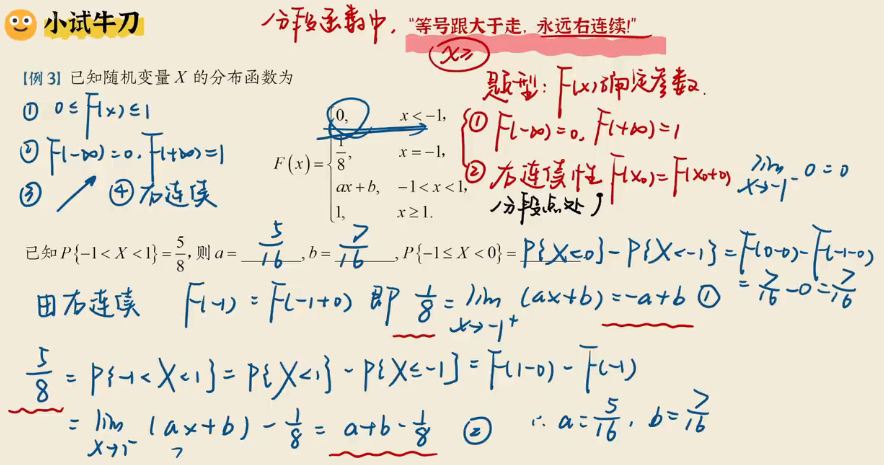 小试牛刀
分段函数中,“等号跟大于走,永远右连续!”
x≥
【例3】已知随机变量 X 的分布函数为
题型: F(x)确定参数.
① 0≤F(x)≤1
② F(-∞)=0, F(+∞)=1
③ ↗ ④右连续
F(x)=
0, x<-1,
1/8, x=-1,
ax+b, -1<x<1,
1, x≥1.
① F(-∞)=0, F(+∞)=1
② 右连续性 F(x₀)=F(x₀+0)
分段点处↗
lim x→-1⁻ 0=0
已知P{-1<X<1}=5/8,则a= 5/16 ,b= 7/16 ,P{-1≤X<0}= P{X<0}-P{X<-1}=F(0-0)-F(-1-0)
=7/16-0=7/16
由右连续 F(-1)=F(-1+0) 即 1/8=lim x→-1⁺ (ax+b)=-a+b ①
5/8=P{-1<X<1}=P{X<1}-P{X≤-1}=F(1-0)-F(-1)
=lim x→1⁻ (ax+b)-1/8=a+b-1/8 ② ∴ a=5/16, b=7/16